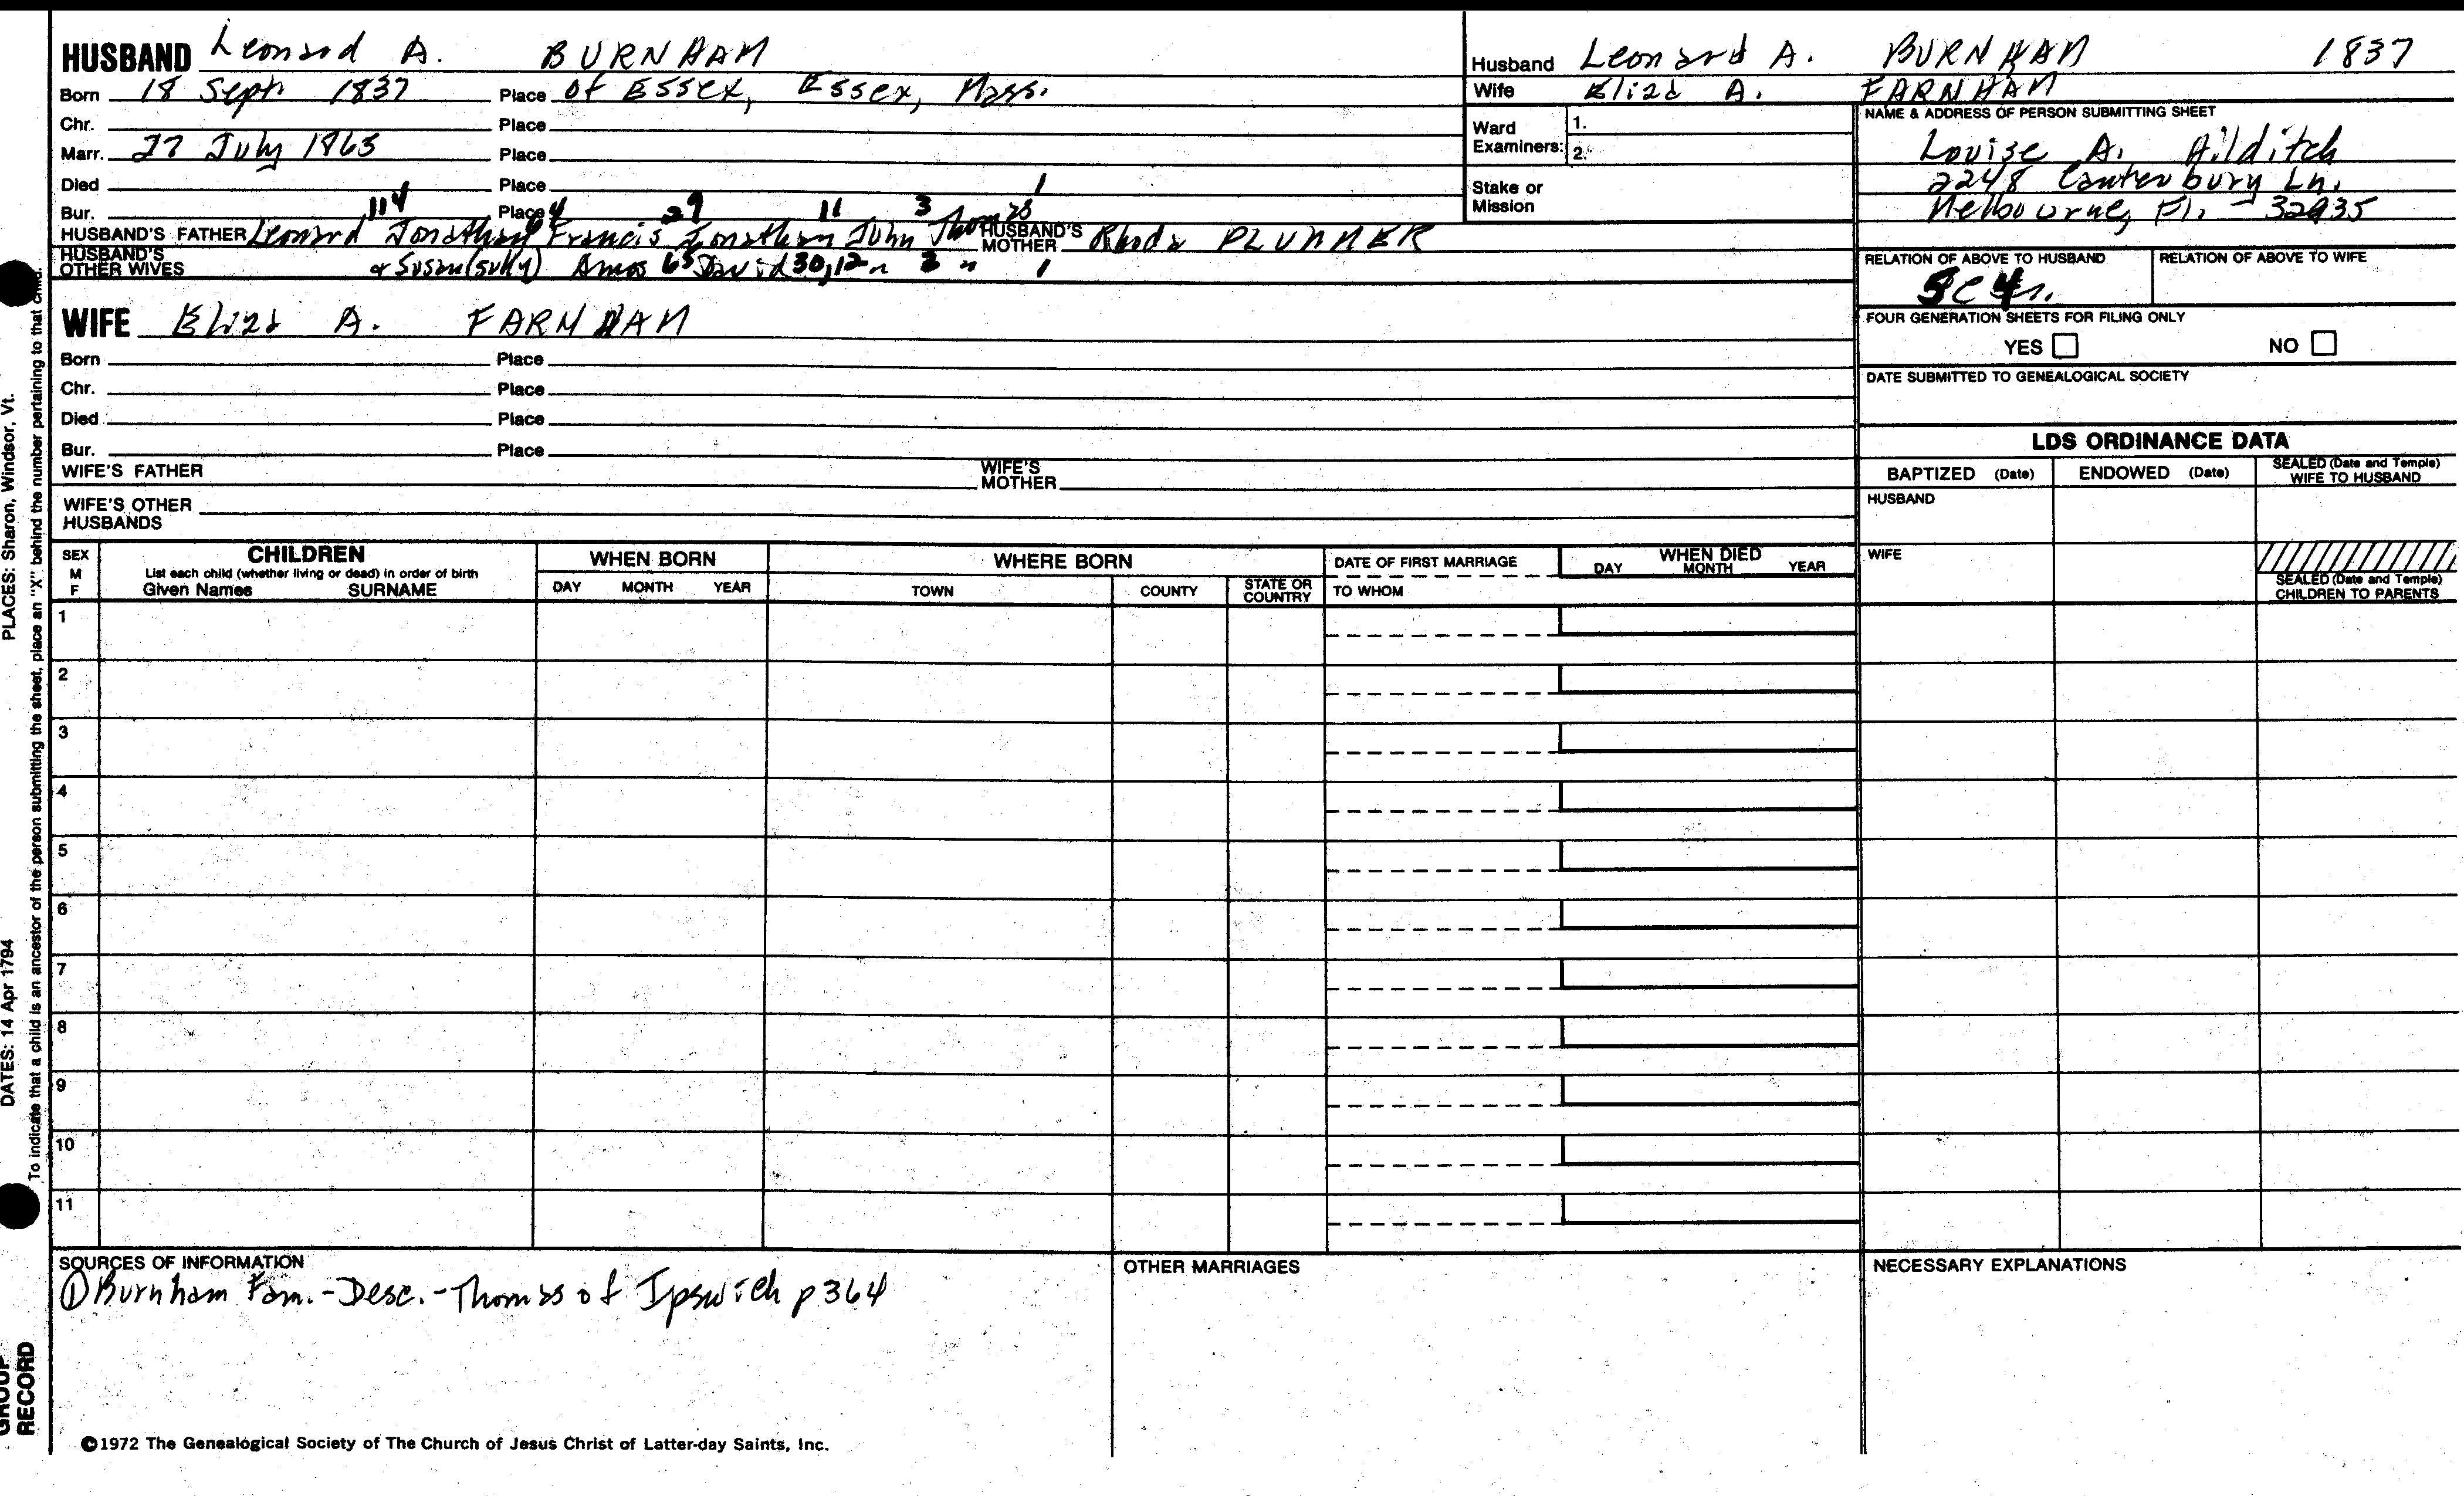 HUSBAND Leonard A. BURNHAM
Born 18 Sept 1837 Place of Essex, Essex, Mass.
Chr. Place
Marr. 27 July 1863 Place
Died Place
Bur. Place
114 4 29 11 3 1
HUSBAND'S FATHER Leonard Jonathan Francis Jonathan John Thomas HUSBAND'S MOTHER Rhoda PLUMMER
HUSBAND'S OTHER WIVES or Susan (suky) Amos 65 David 30, 12 " 3 " 1
WIFE Eliza A. FARNHAM
Born Place
Chr. Place
Died Place
Bur. Place
WIFE'S FATHER WIFE'S MOTHER
WIFE'S OTHER HUSBANDS
Husband Leonard A. BURNHAM 1837
Wife Eliza A. FARNHAM
Ward Examiners: 1.
2.
Stake or Mission
NAME & ADDRESS OF PERSON SUBMITTING SHEET
Louise A. Hilditch
2248 Canterbury Ln.
Melbourne, Fl. - 32935
RELATION OF ABOVE TO HUSBAND RELATION OF ABOVE TO WIFE
5C 4r.
FOUR GENERATION SHEETS FOR FILING ONLY
YES NO
DATE SUBMITTED TO GENEALOGICAL SOCIETY
LDS ORDINANCE DATA
BAPTIZED (Date) ENDOWED (Date) SEALED (Date and Temple) WIFE TO HUSBAND
HUSBAND
WIFE
SEALED (Date and Temple) CHILDREN TO PARENTS
SEX M F
CHILDREN
List each child (whether living or dead) in order of birth
Given Names SURNAME
WHEN BORN
DAY MONTH YEAR
WHERE BORN
TOWN COUNTY STATE OR COUNTRY
DATE OF FIRST MARRIAGE
TO WHOM
WHEN DIED
DAY MONTH YEAR
1
2
3
4
5
6
7
8
9
10
11
SOURCES OF INFORMATION
① Burnham Fam. - Desc. - Thomas of Ipswich p 364
OTHER MARRIAGES
NECESSARY EXPLANATIONS
©1972 The Genealogical Society of The Church of Jesus Christ of Latter-day Saints, Inc.
PLACES: Sharon, Windsor, Vt.
DATES: 14 Apr 1794
To indicate that a child is an ancestor of the person submitting the sheet, place an "X" behind the number pertaining to that child.
GROUP
RECORD